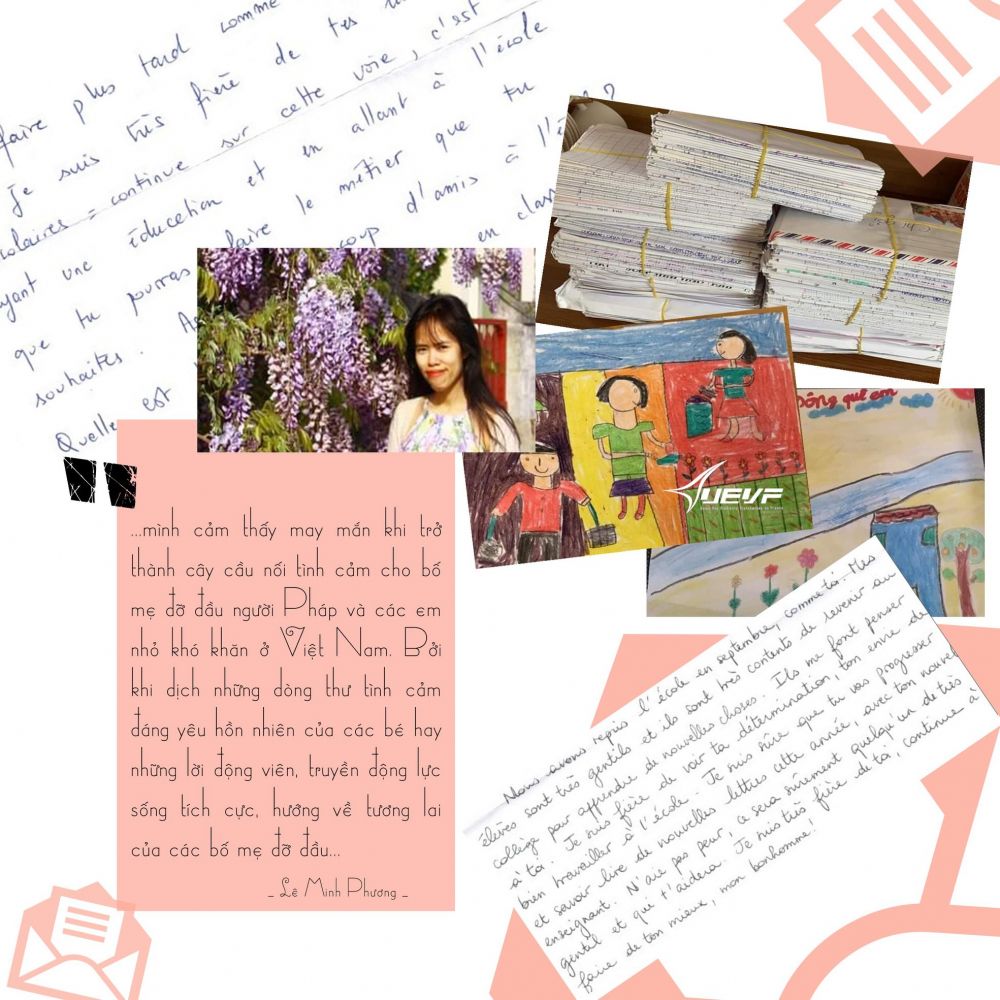 faire plus tard comme
Je suis très fière de tes
scolaires = continue sur cette voie, c'est
ayant une éducation et en allant à l'école
que tu pourras faire le métier que tu
souhaites. d'amis à l'é
Quelle est en class
?
Đông quê em
UEVF
...mình cảm thấy may mắn khi trở
thành cây cầu nối tình cảm cho bố
mẹ đỡ đầu người Pháp và các em
nhỏ khó khăn ở Việt Nam. Bởi
khi dịch những dòng thư tình cảm
đáng yêu hồn nhiên của các bé hay
những lời động viên, truyền động lực
sống tích cực, hướng về tương lai
của các bố mẹ đỡ đầu...
_ Lê Minh Phương _
Nous avons repris l'école en septembre, comme toi. Mes
élèves sont très gentils et ils sont très contents de revenir au
collège pour apprendre de nouvelles choses. Ils me font penser
à toi. Je suis fière de voir ta détermination, ton envie de
bien travailler à l'école. Je suis sûre que tu vas progresser
et savoir lire de nouvelles lettres cette année, avec ton nouvel
enseignant. N'aie pas peur, ce sera sûrement quelqu'un de très
gentil et qui t'aidera. Je suis très fière de toi, continue à
faire de ton mieux, mon bonhomme!